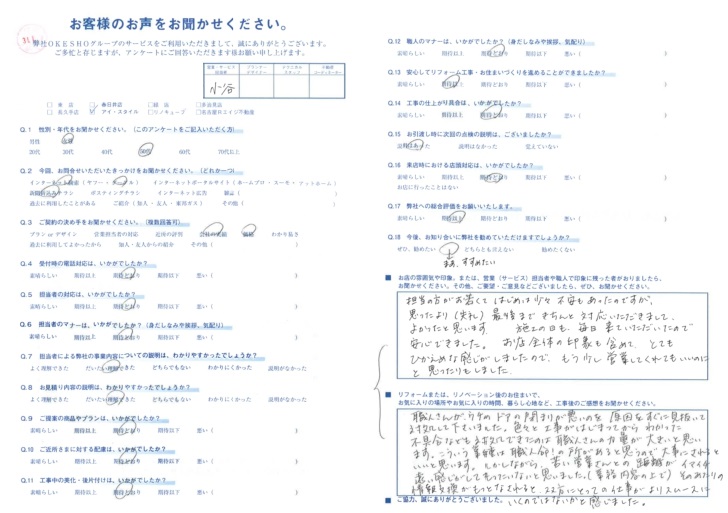 お客様のお声をお聞かせください。
弊社OKESHOグループのサービスをご利用いただきまして、誠にありがとうございます。
ご多忙と存じますが、アンケートにご回答いただきます様お願い申し上げます。
小谷
Q.1 性別・年代をお聞かせください。（このアンケートをご記入いただく方）
男性 女性
20代 30代 40代 50代 60代 70代以上
Q.2 今回、お問合せいただいたきっかけをお聞かせください。（どれか一つ）
新聞折込チラシ ポスティングチラシ インターネット広告 雑誌（ ）
過去に利用したことがある ご紹介（知人・友人・東邦ガス） その他（ ）
Q.3 ご契約の決め手をお聞かせください。（複数回答可）
プラン or デザイン 営業担当者の対応 近所の評判 会社の実績 価格 わかり易さ
過去に利用してよかったから 知人・友人からの紹介 その他（ ）
Q.4 受付時の電話対応は、いかがでしたか？
素晴らしい 期待以上 期待どおり 期待以下 悪い（ ）
Q.5 担当者の対応は、いかがでしたか？
素晴らしい 期待以上 期待どおり 期待以下 悪い（ ）
Q.6 担当者のマナーは、いかがでしたか？（身だしなみや挨拶、気配り）
素晴らしい 期待以上 期待どおり 期待以下 悪い（ ）
Q.7 担当者による弊社の事業内容についての説明は、わかりやすかったでしょうか？
よく理解できた だいたい理解できた どちらでもない わかりにくかった 説明がなかった
Q.8 お見積り内容の説明は、わかりやすかったでしょうか？
よく理解できた だいたい理解できた どちらでもない わかりにくかった 説明がなかった
Q.9 ご提案の商品やプランは、いかがでしたか？
素晴らしい 期待以上 期待どおり 期待以下 悪い（ ）
Q.10 ご近所さまに対する配慮は、いかがでしたか？
素晴らしい 期待以上 期待どおり 期待以下 悪い（ ）
Q.11 工事中の美化・後片付けは、いかがでしたか？
素晴らしい 期待以上 期待どおり 期待以下 悪い（ ）
Q.12 職人のマナーは、いかがでしたか？（身だしなみや挨拶、気配り）
素晴らしい 期待以上 期待どおり 期待以下 悪い（ ）
Q.13 安心してリフォーム工事・お住まいづくりを進めることができましたか？
素晴らしい 期待以上 期待どおり 期待以下 悪い（ ）
Q.14 工事の仕上がり具合は、いかがでしたか？
素晴らしい 期待以上 期待どおり 期待以下 悪い（ ）
Q.15 お引渡し時に次回の点検の説明は、ございましたか？
説明はあった 説明はなかった 覚えていない
Q.16 来店時における店頭対応は、いかがでしたか？
素晴らしい 期待以上 期待どおり 期待以下 悪い（ ）
お店に行ったことはない
Q.17 弊社への総合評価をお願いいたします。
素晴らしい 期待以上 期待どおり 期待以下 悪い（ ）
Q.18 今後、お知り合いに弊社を勧めていただけますでしょうか？
ぜひ、勧めたい どちらとも言えない 勧めたくない
すすめたい
■ お店の雰囲気や印象、または、営業（サービス）担当者や職人で印象に残った者がおりましたら、
お聞かせください。その他、ご要望・ご意見などございましたら、ぜひ、お聞かせください。
担当の方がお若くてはじめは少々不安もあったのですが、
思ったより（失礼）最後まできちんと対応いただきまして、
よかったと思います。 施工の日も、毎日来ていただいたので
安心できました。 お店全体の印象も含めて、とても
ひかえめな感じがしましたので、もう少し営業してくれてもいいのに
と思ったりもしました。
■ リフォームまたは、リノベーション後のお住まいで、
お気に入りの場所やお気に入りの時間、暮らし心地など、工事後のご感想をお聞かせください。
職人さんが、ウチのドアの閉まりが悪いのを原因をすぐに見抜いて
対処して下さいました。色々と工事がはじまってから わかった
不具合なども対処できたのは 職人さんの力量が大きいと思い
ます。こういう業種は職人命！の所があると思うので大事にされると
いいと思います。しかしながら、若い営業さんとの距離がイマイチ
遠い感じがしてもったいないと思いました。（業務内容の上で）そのあたりの
情報交換がもっとなされると、双方にとっての仕事がよりスムーズに
いくのではないかと感じました。
■ ご協力、誠にありがとうございました。